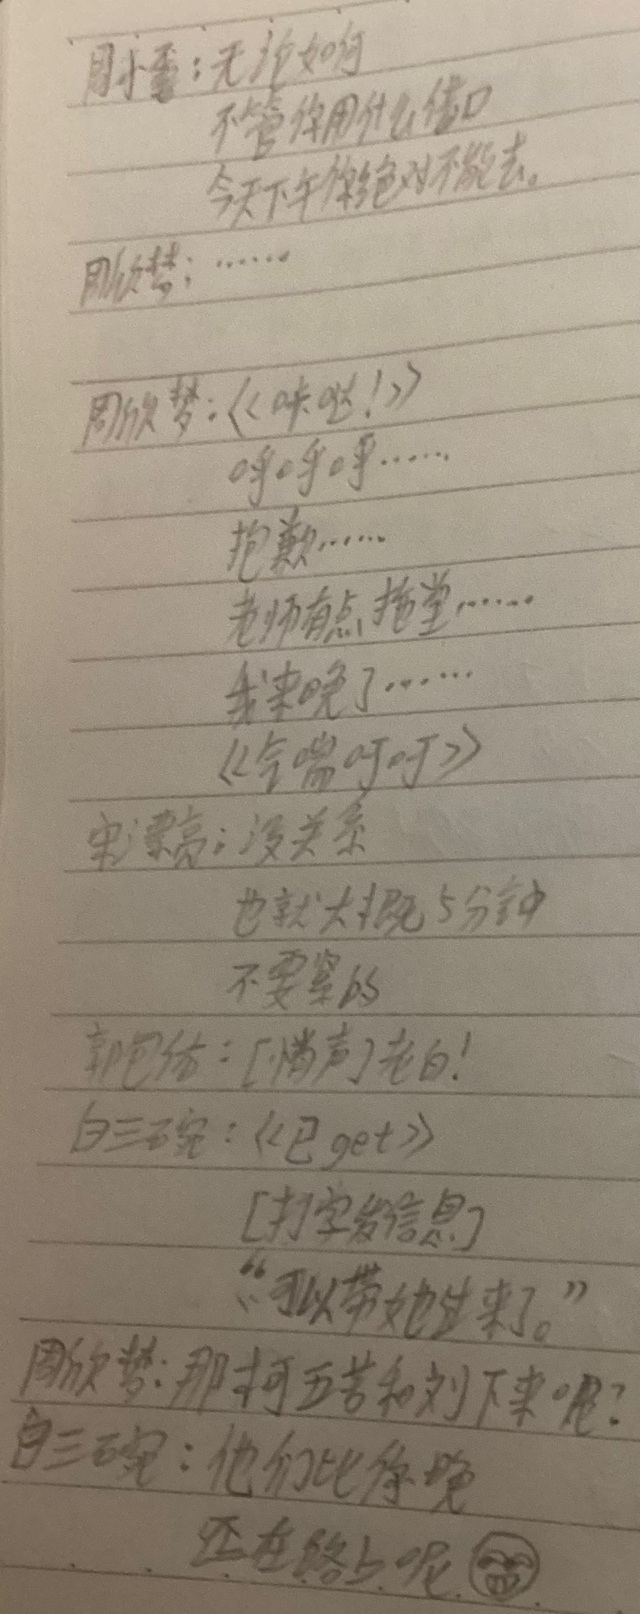 周小蛋：无论如何
不管你用什么借口
今天下午你绝对不能去。
周欣梦：……
周欣梦：《咔哒！》
呼呼呼……
抱歉……
老师有点拖堂……
我来晚了……
《气喘吁吁》
宋漂亮：没关系
也就大概5分钟
不要紧哒
郭包结：[悄声]老白！
白三碗：《已get》
[打字发信息]
“可以带她过来了。”
周欣梦：那柯五苦和刘下来呢？
白三碗：他们比你晚
还在路上呢